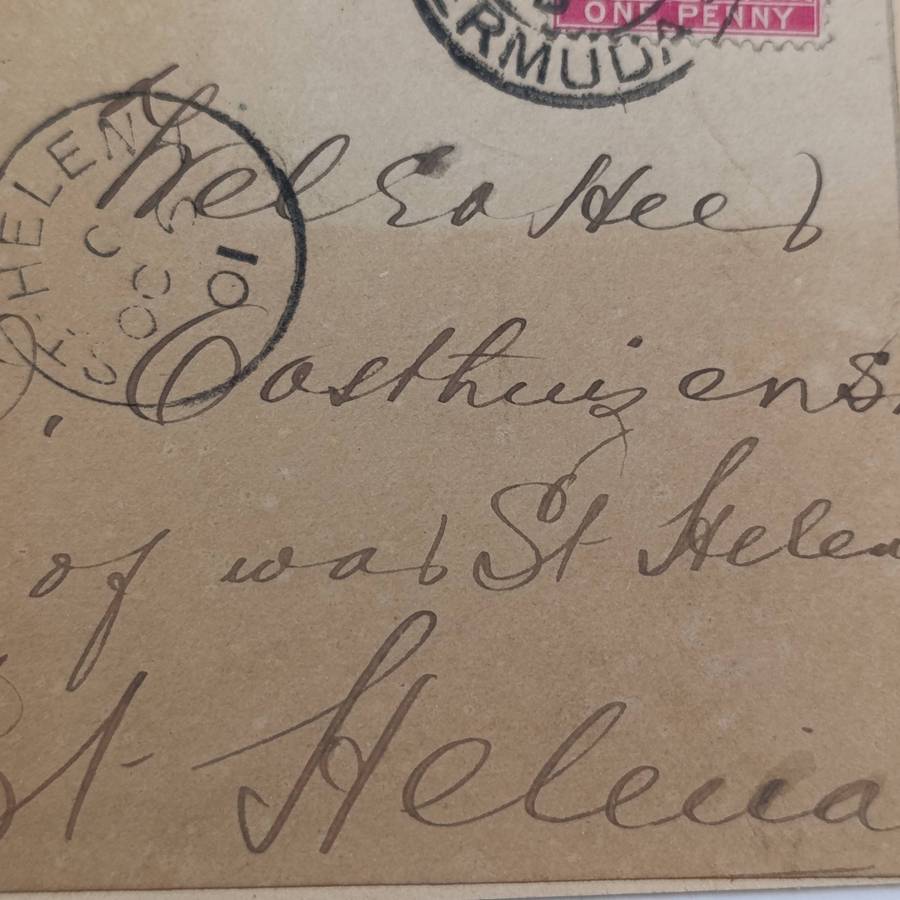 ONE PENNY
ERMUDA
HELENA
C
OC 5
01
Heer
Oosthuizens.
of war St Helena
St Helena